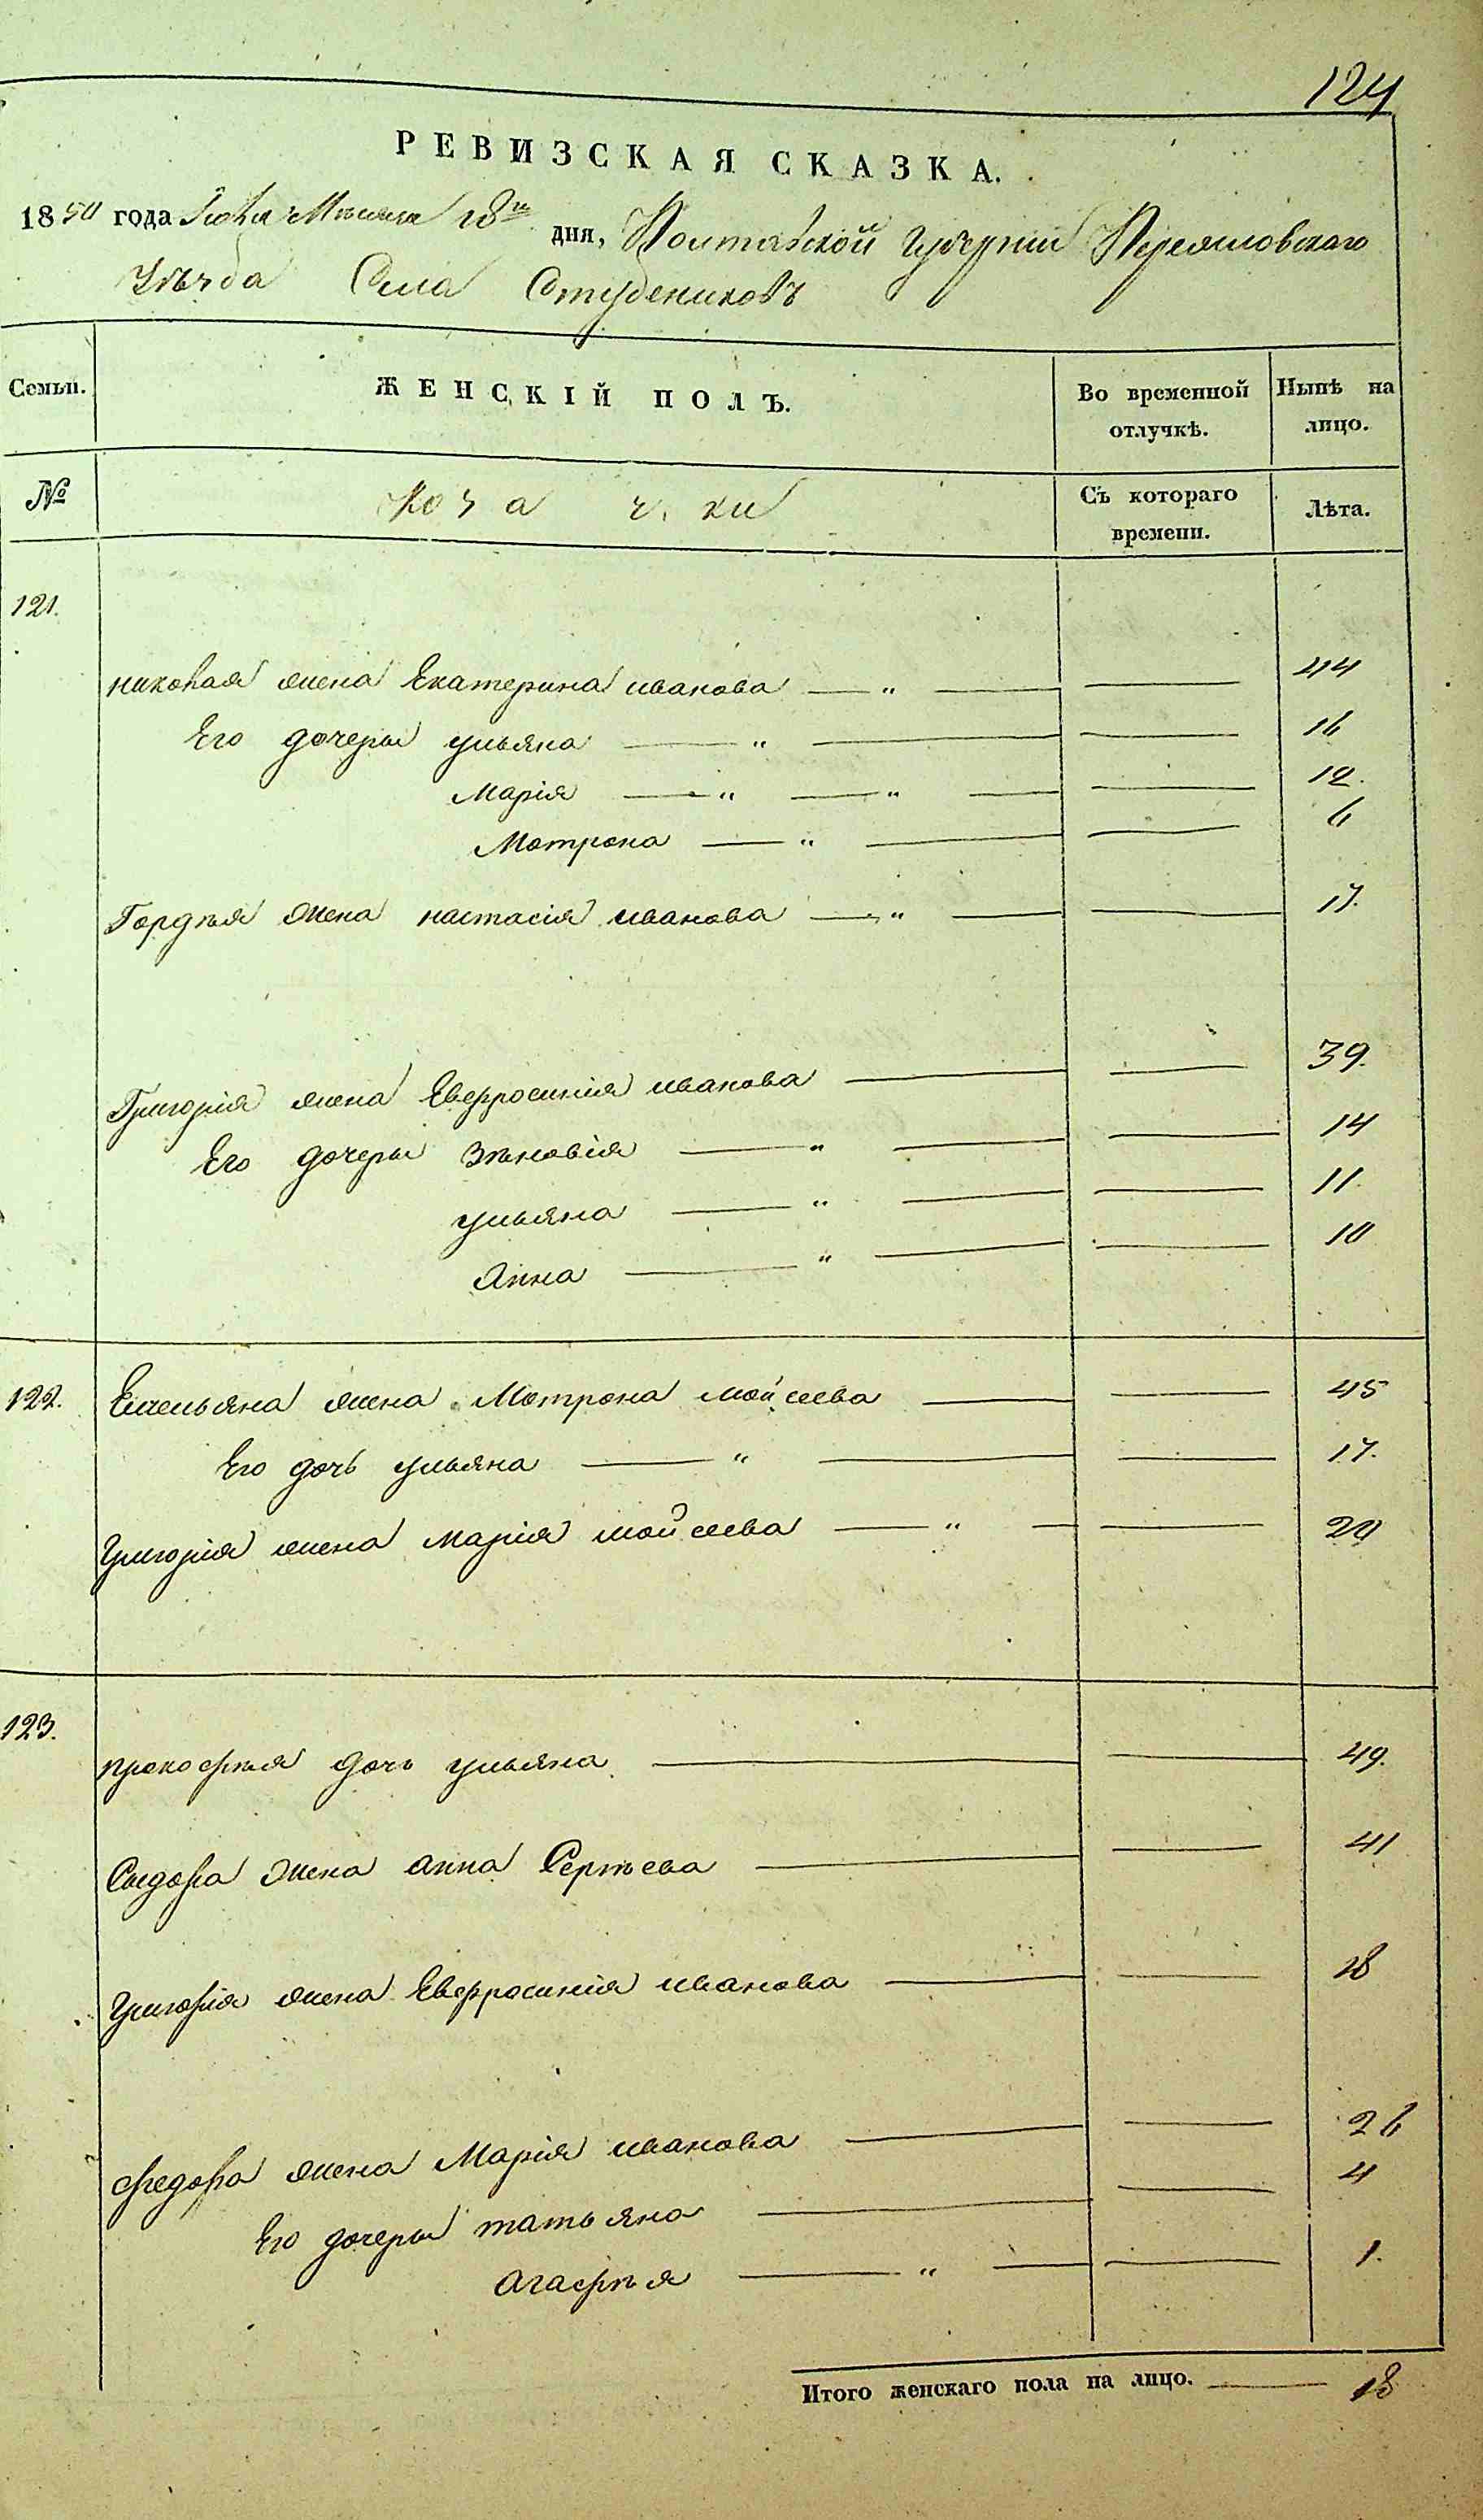 124
РЕВИЗСКАЯ СКАЗКА.
1850 года Мѣсяца 18го дня, Полтавской Губерніи Переяшовскаго
Уѣзда Села Студениковъ
Семьи. ЖЕНСКІЙ ПОЛЪ. Во временной отлучкѣ. Нынѣ на лицо.
№ Козачки Съ котораго времени. Лѣта.
121.
николая жена Екатерина иванова — „ — — 44
Его дочеры ульяна — „ — — 16
Марія — „ — „ — — 12.
Мотрона — „ — — 6
Гордѣя жена настасія иванова — „ — — 17.
Григорія жена Евфросинія иванова — — 39.
Его дочеры Зѣновія — „ — — 14
ульяна — „ — — 11.
Анна — „ — — 10
122. Емельяна жена Мотрона мойсеева — — 45
Его дочь ульяна — „ — — 17.
Григорія жена марія мойсеева — „ — — 20
123.
прокофѣя дочь ульяна — — 49.
Сыдора жена анна Сергѣева — — 41
Григорія жена Евфросинія иванова — — 18
Федора жена Марія иванова — — 26
Его дочеры татьяна — — 4
агафѣя — „ — — 1.
Итого женскаго пола на лицо. — 18